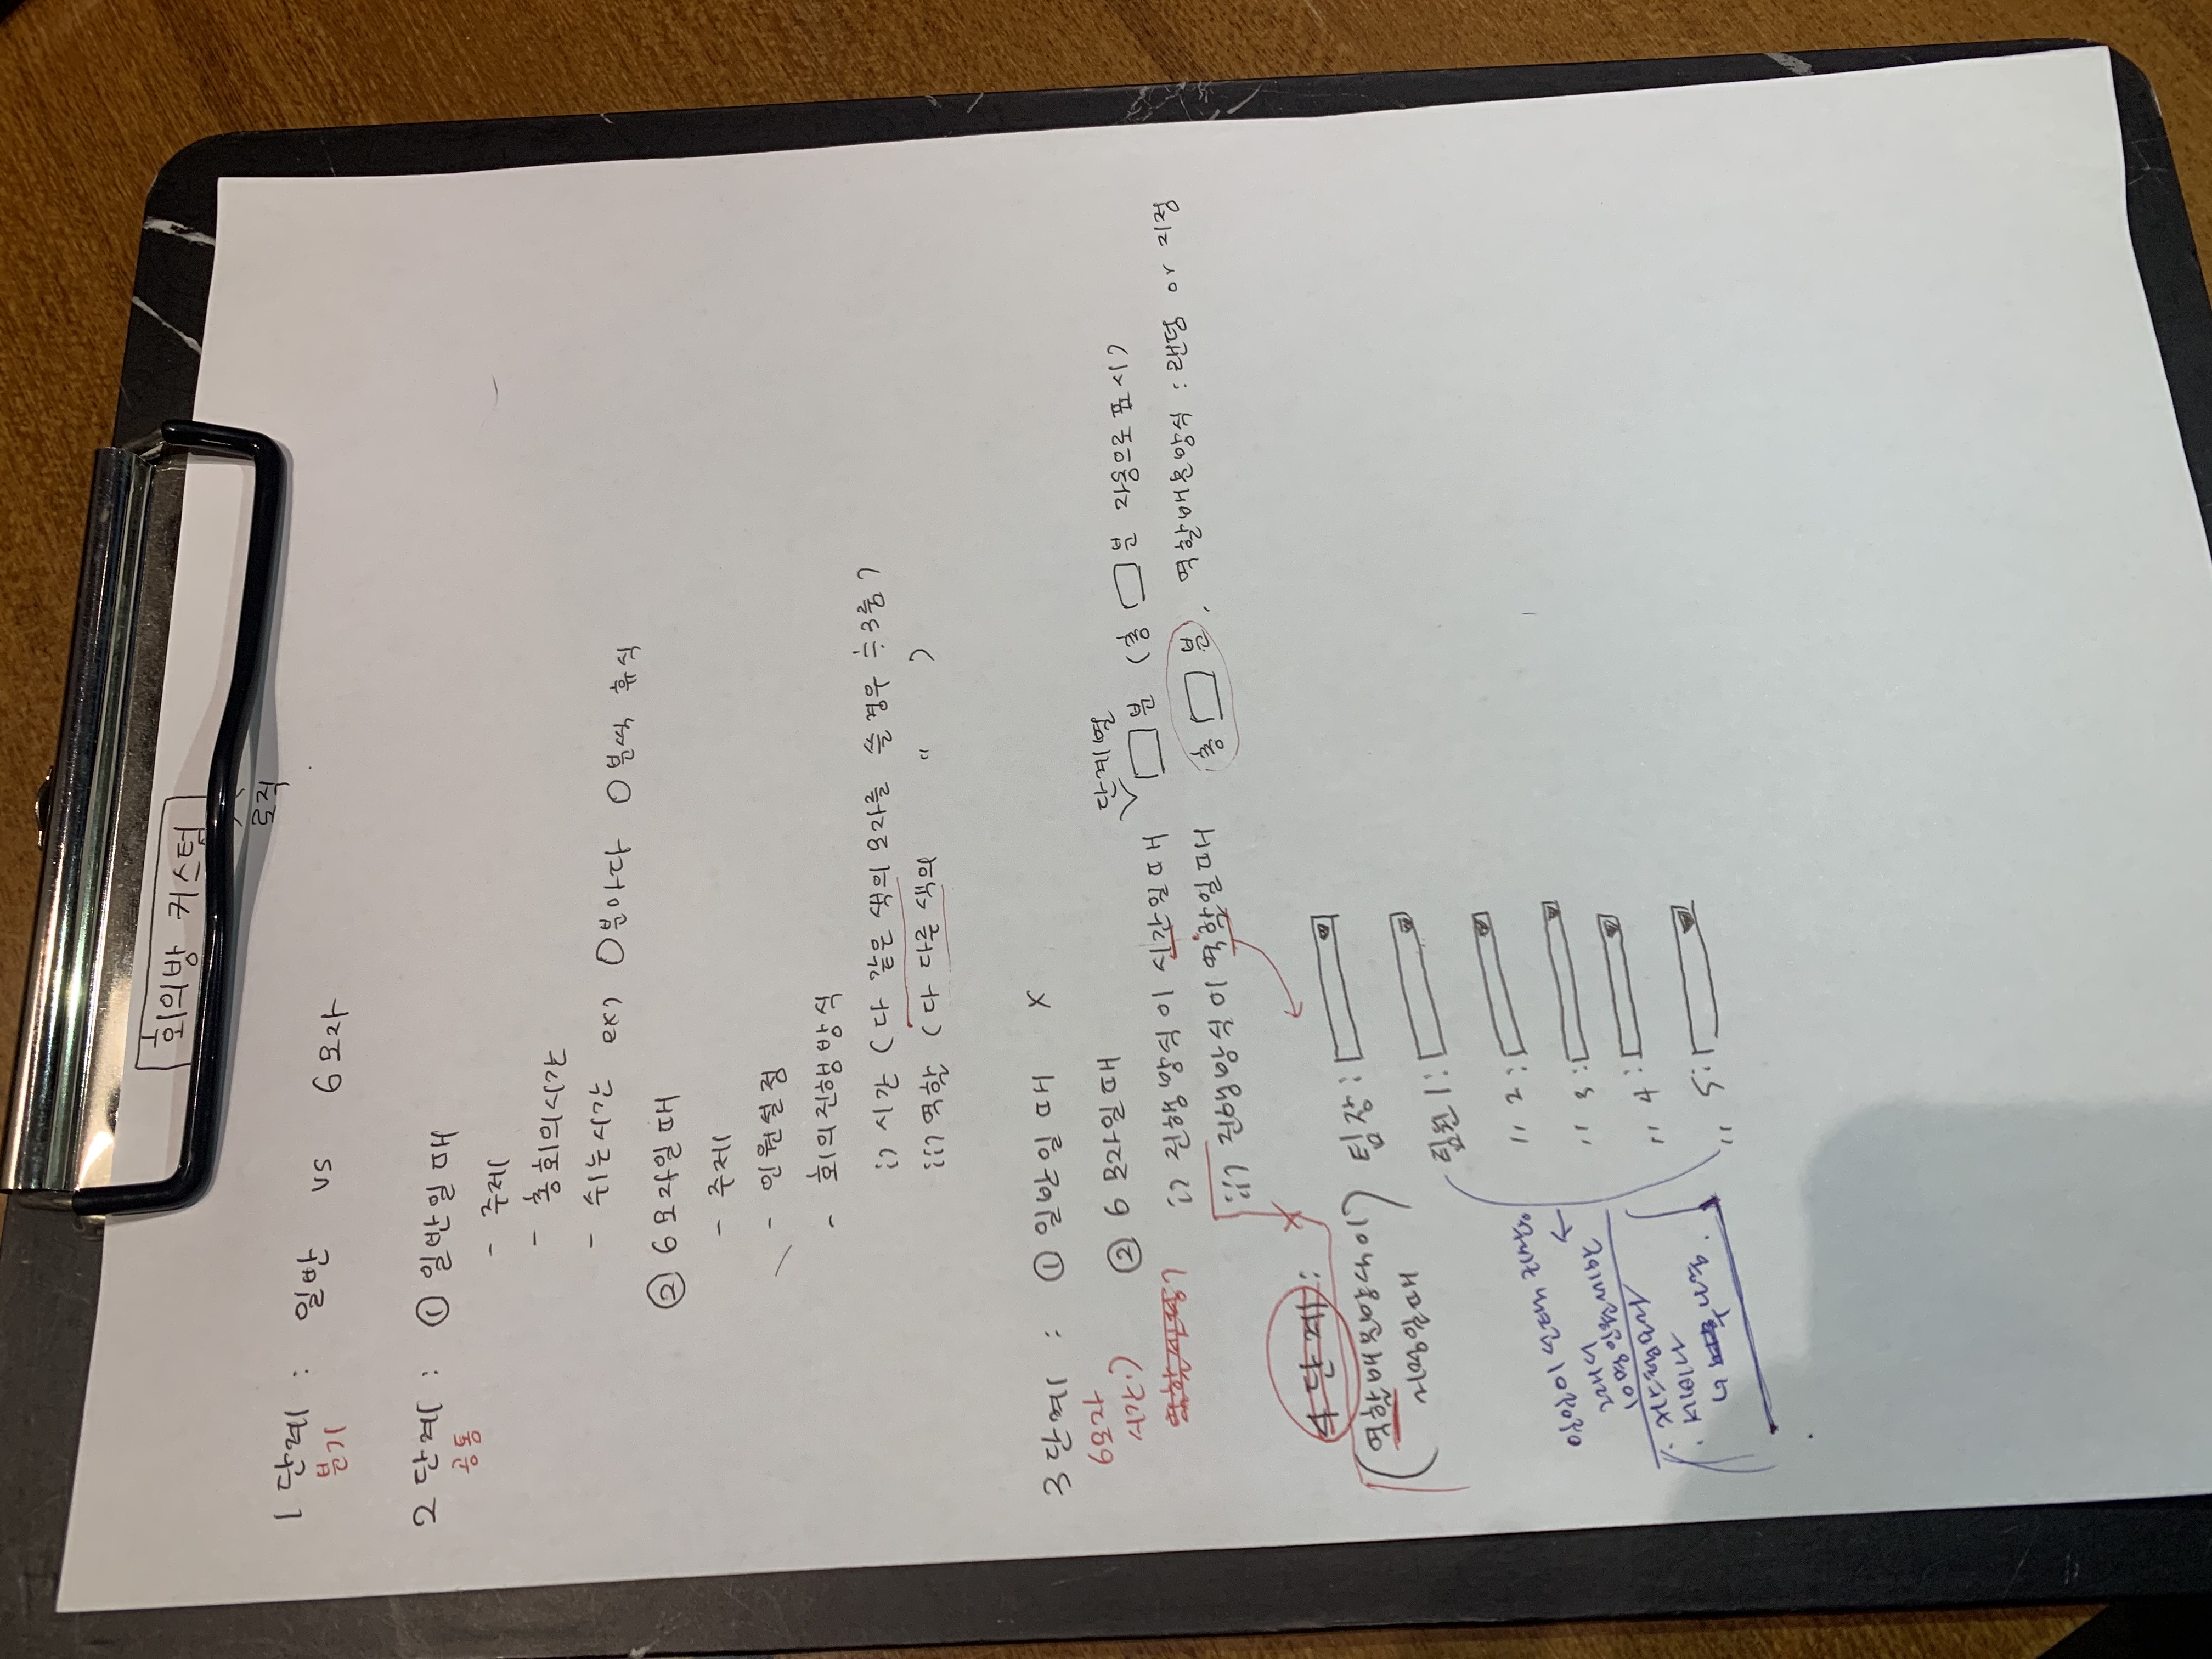 회의방 커스텀
로직
1단계 : 일반 vs 6모자
분기
2단계 : ① 일반일 때
공통
- 주제
- 총회의시간
- 쉬는시간 ex) O분마다 O분씩 휴식
② 6모자일 때
- 주제
- 인원설정
- 회의진행방식
i) 시간 (다 같은 색의 모자를 쓸 경우 ≒ 3룸)
ii) 역할 (다 다른 색의 〃 )
3단계 : ① 일반일 때 x
6모자
시간)
② 6모자일 때
단계별
i) 진행방식이 시간일 때 분 (총 분 자동으로 표시)
ii) 진행방식이 역할일 때 총 분, 역할배분방식 : 랜덤 or 지정
4단계 :
(역할배분방식이
지정일때)
팀장 :
팀원 1 :
〃 2 :
〃 3 :
〃 4 :
〃 5 :
일일이 선택
그래서
10명 인원제한